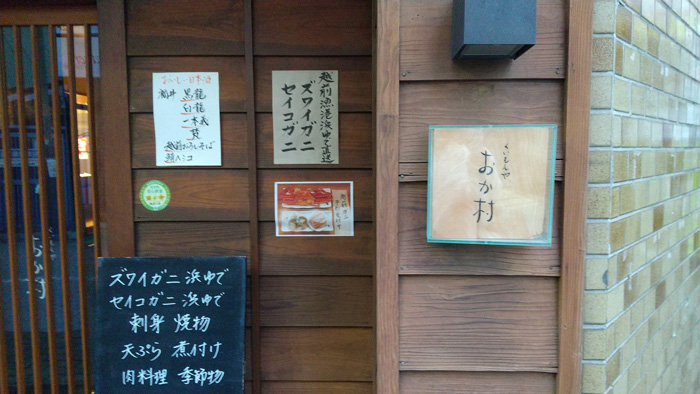 おいしい日本酒
福井 黒龍
白龍
一本義
梵
越前おろしそば
越前漁港浜ゆで直送
ズワイガニ
セイコガニ
おか村
おか村
ズワイガニ 浜ゆで
セイコガニ 浜ゆで
刺身 焼物
天ぷら 煮付け
肉料理 季節物